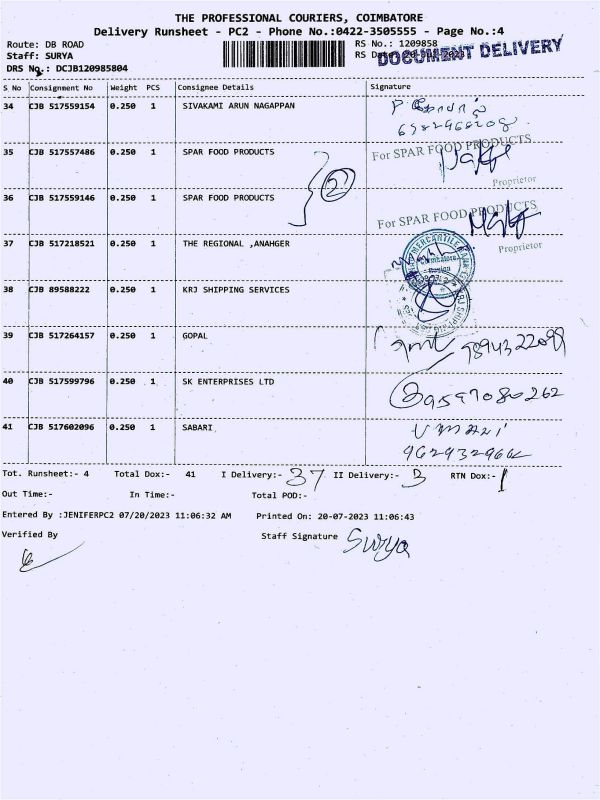 THE PROFESSIONAL COURIERS, COIMBATORE
Delivery Runsheet - PC2 - Phone No.:0422-3505555 - Page No.:4
Route: DB ROAD RS No.: 1209858
Staff: SURYA RS
DOCUMENT DELIVERY
DRS No.: DCJB120985804
S No Consignment No Weight PCS Consignee Details Signature
34 CJB 517559154 0.250 1 SIVAKAMI ARUN NAGAPPAN
35 CJB 517557486 0.250 1 SPAR FOOD PRODUCTS For SPAR FOOD PRODUCTS
Proprietor
2
36 CJB 517559146 0.250 1 SPAR FOOD PRODUCTS For SPAR FOOD PRODUCTS
Proprietor
37 CJB 517218521 0.250 1 THE REGIONAL ,ANAHGER
38 CJB 89588222 0.250 1 KRJ SHIPPING SERVICES
39 CJB 517264157 0.250 1 GOPAL
40 CJB 517599796 0.250 1 SK ENTERPRISES LTD
41 CJB 517602096 0.250 1 SABARI
Tot. Runsheet:- 4 Total Dox:- 41 I Delivery:- 37 II Delivery:- 3 RTN Dox:- 1
Out Time:- In Time:- Total POD:-
Entered By :JENIFERPC2 07/20/2023 11:06:32 AM Printed On: 20-07-2023 11:06:43
Verified By Staff Signature Surya